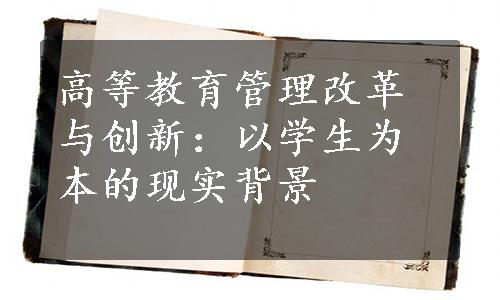 高等教育管理改革
与创新：以学生为
本的现实背景